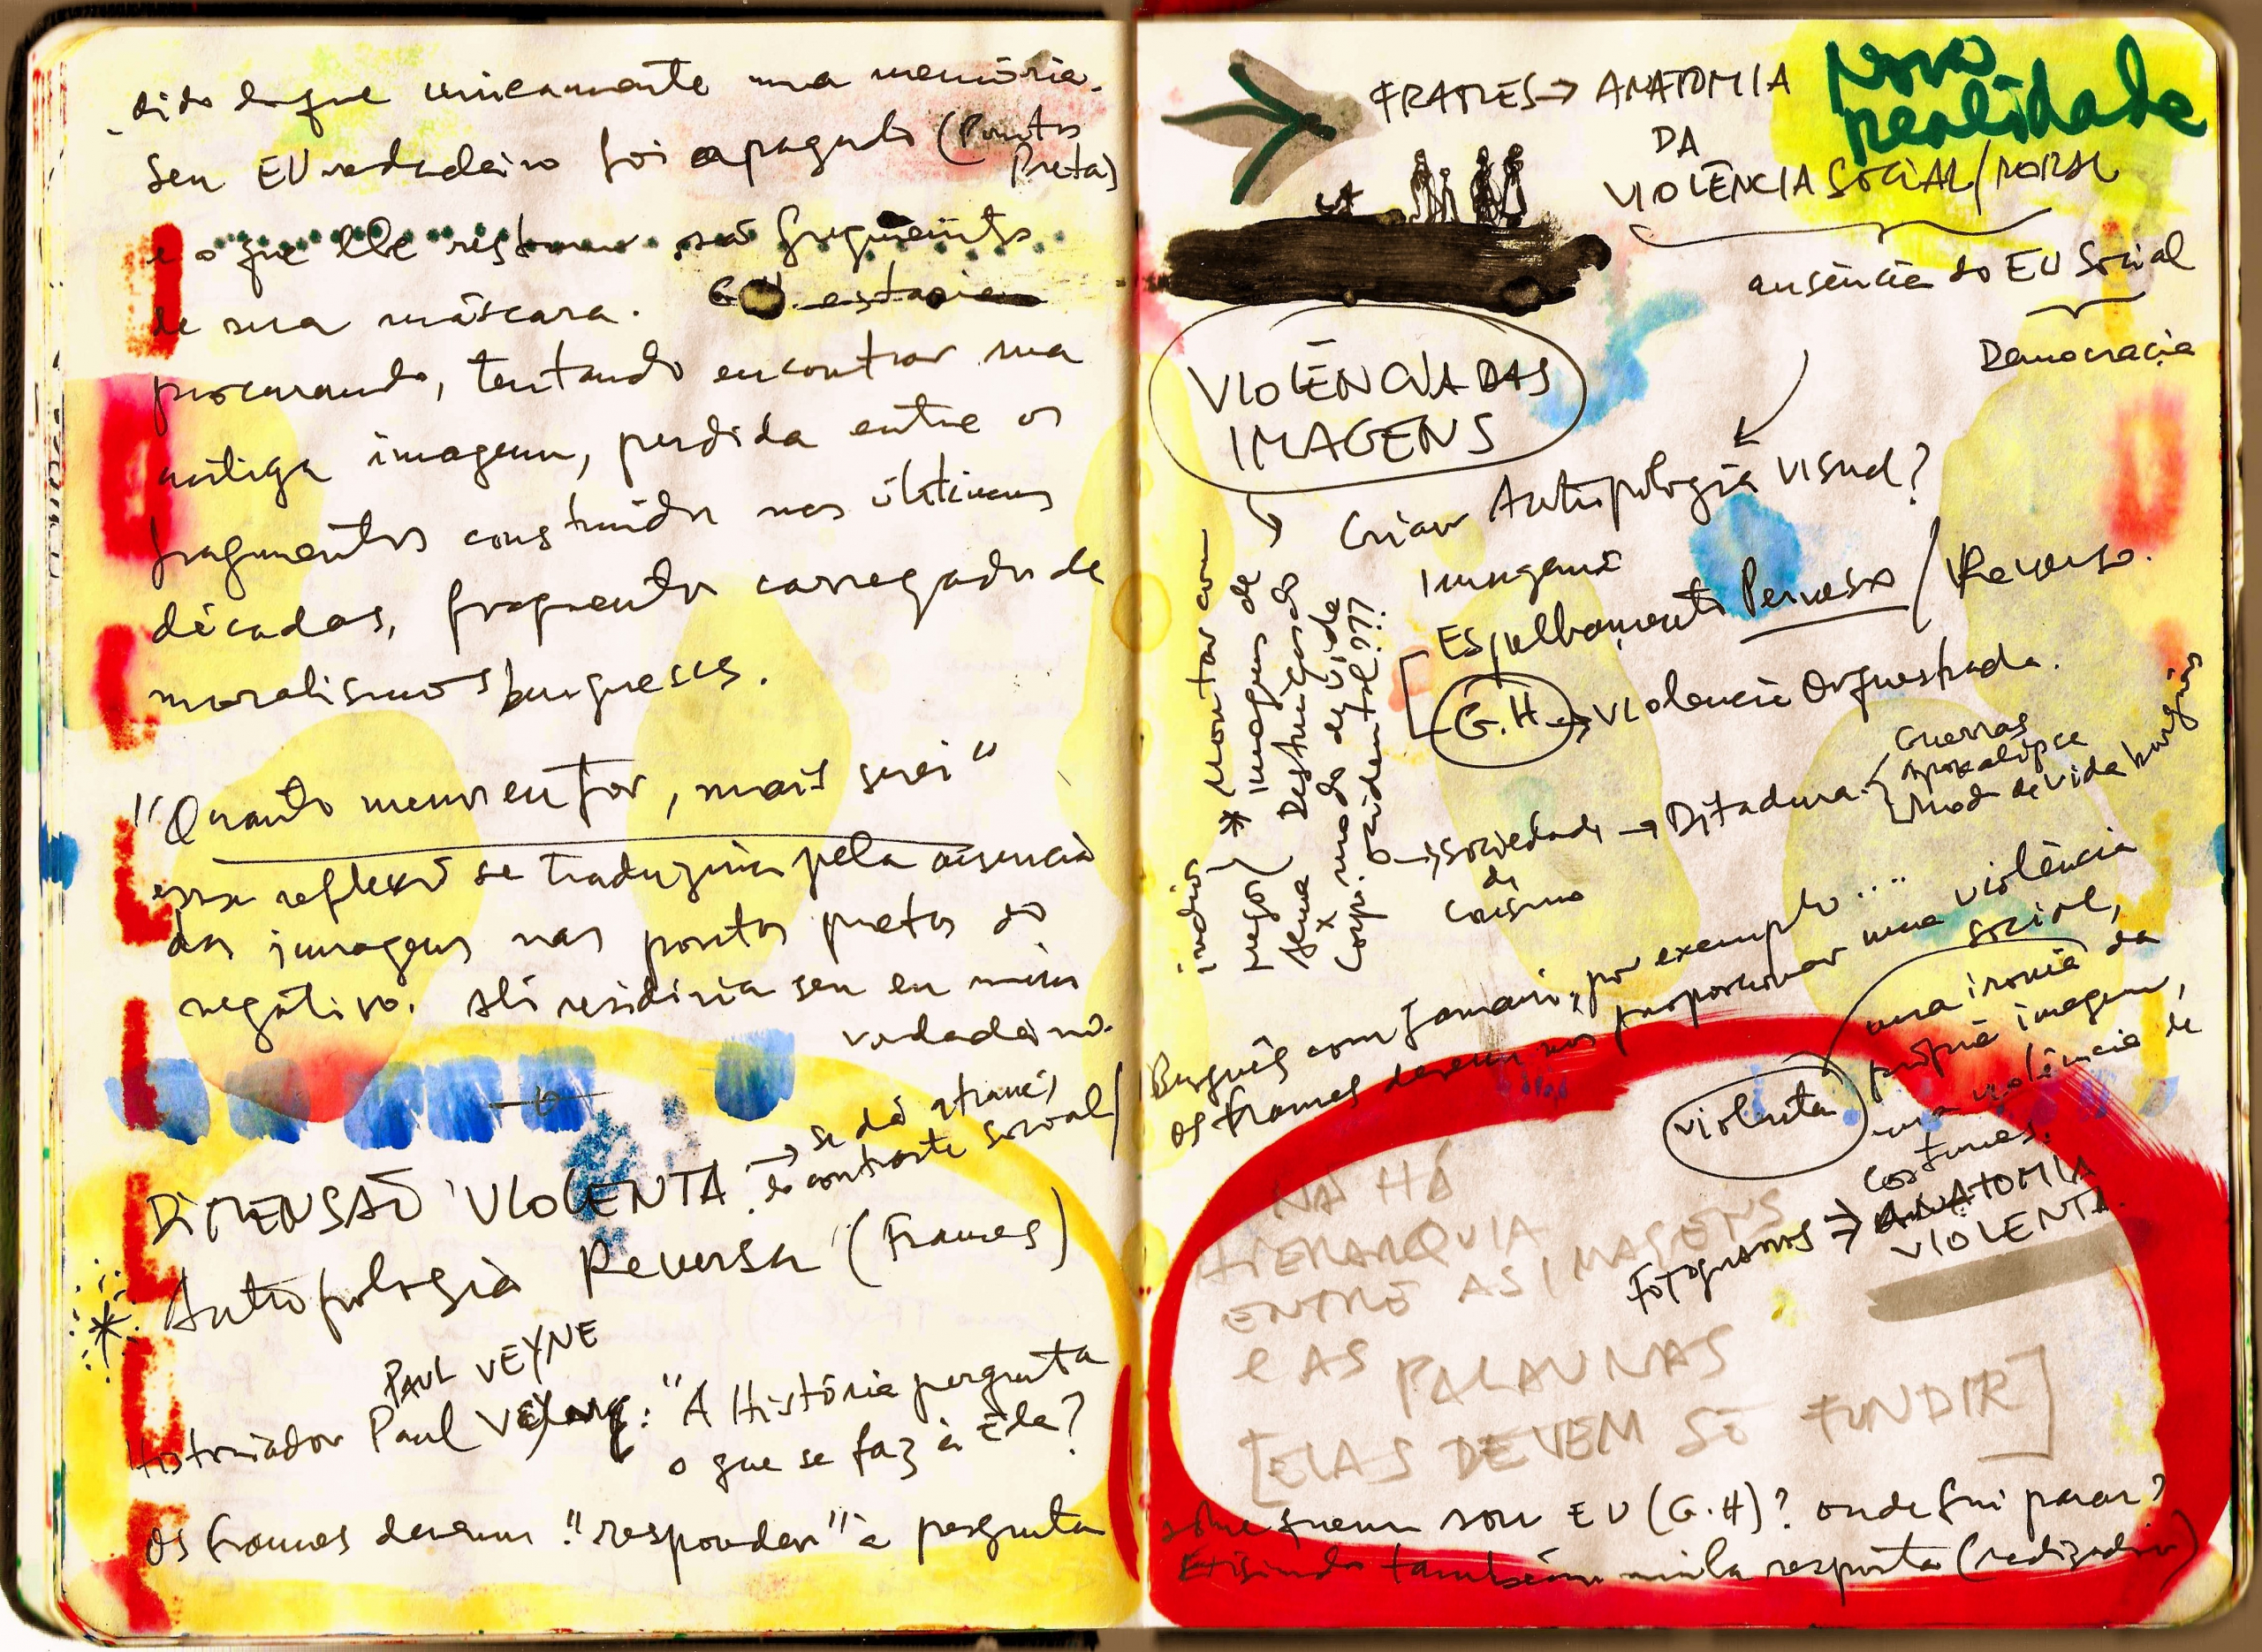 dido e que unicamente uma memória.
Seu EU verdadeiro foi apagado (Pontas
Preta)
e o que lhe restaram são fragmentos
de sua máscara. estaria
procurando, tentando encontrar sua
antiga imagem, perdida entre os
fragmentos construídos nas últimas
décadas, fragmentos carregados de
moralismos burgueses.
"Quanto menos eu for, mais serei"
essa reflexão se traduziria pela ausência
das imagens nas pontas pretas do
negativo. Ali residiria seu eu mais
verdadeiro.
DIMENSÃO VIOLENTA → se dá através
do contraste social/
* Antropologia Reversa (Frames)
PAUL VEYNE
Historiador Paul : "A História pergunta
o que se faz à Ela?
Os frames devem "responder" à pergunta
FRAMES → ANATOMIA
DA
VIOLÊNCIA SOCIAL/MORAL
Nova
realidade
ausência do EU Social
Democracia
VIOLÊNCIA DAS
IMAGENS
Criar Antropologia Visual?
Imagens
Espelhamento Perverso / Reverso.
G.H → Violência Orquestrada.
→ Sociedade → Ditadura
de
Consumo
Guerras
Apokalipse
Modo de Vida burguês
* Montar com
imagens de
Destruição do
modo de vida
ocidental???
índios
negros
x
Corpo.
Burguês com Jamari, por exemplo....
os frames devem nos proporcionar uma violência
social,
uma ironia da
própria imagem,
uma violência de
costumes.
violenta
Fotogramas → ANATOMIA
VIOLENTA.
NÃ HÁ
HIERARQUIA
ENTRE AS IMAGENS
E AS PALAVRAS
[ELAS DEVEM SE FUNDIR]
sobre quem sou EU (G.H)? onde fui parar?
Exigindo também minha resposta (realizador)